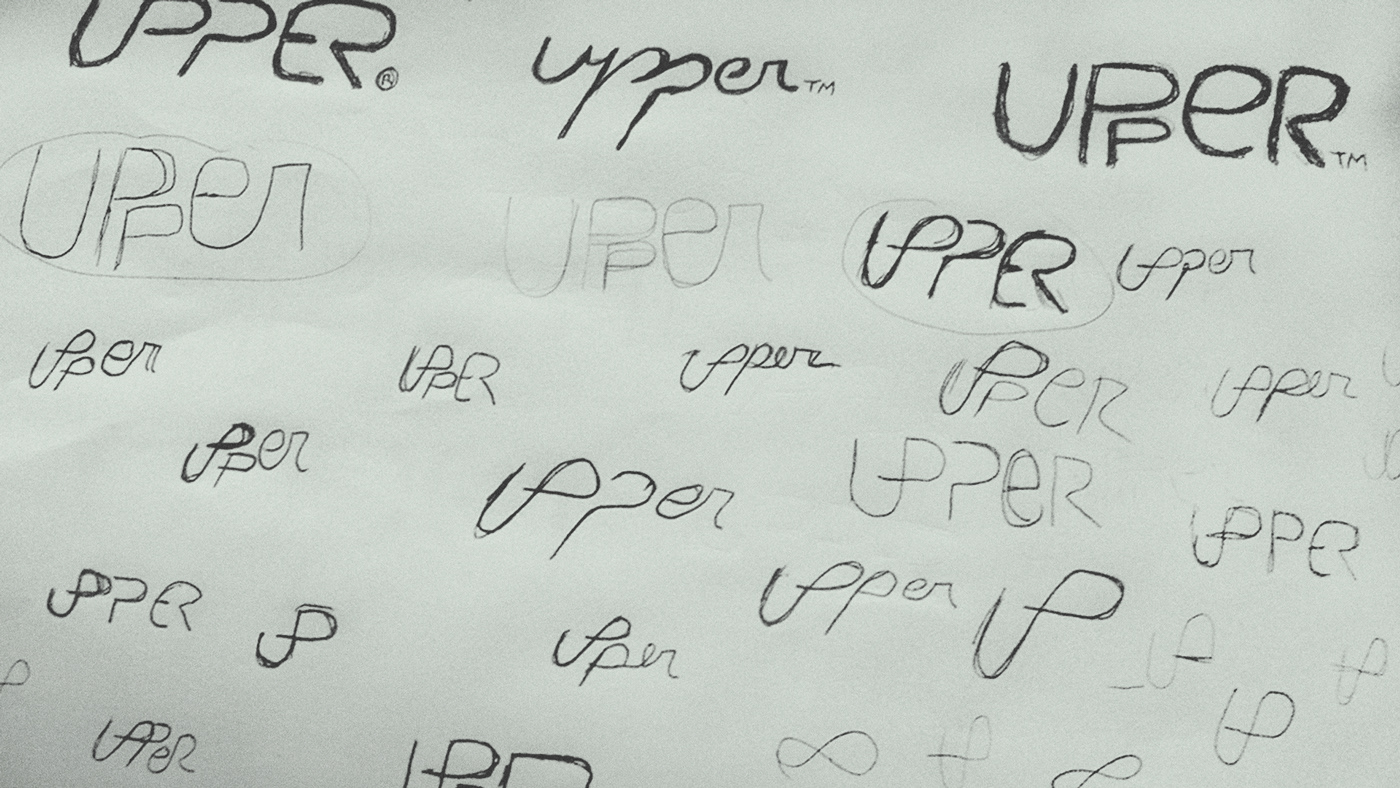 UPPER®
upper™
UPPeR™
UPPer
UPPer
UPPER
upper
upper
UPPER
upper
UPPeR
upper
upper
upper
UPPeR
UPPER
UPPER
UP
upper
upper
UP
UP
UP
UPPeR
UP
∞